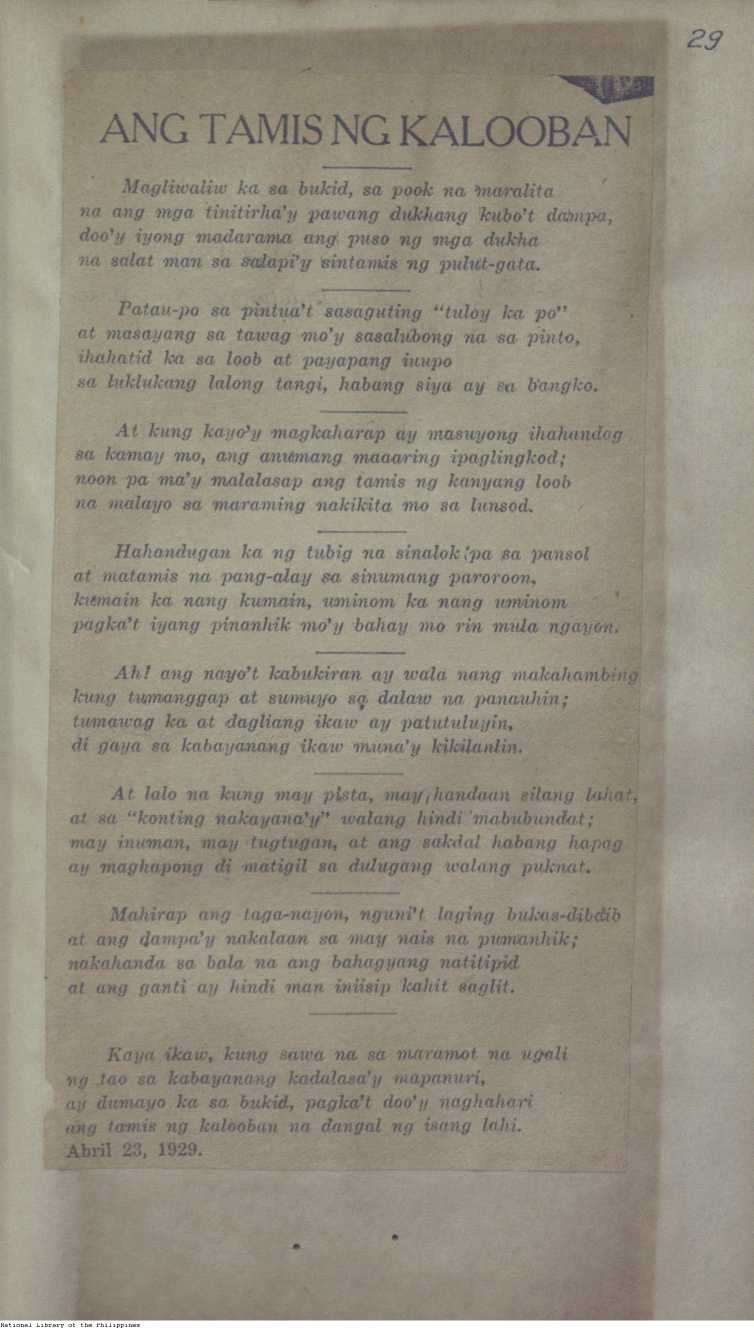 29
ANG TAMIS NG KALOOBAN
Magliwaliw ka sa bukid, sa pook na maralita
na ang mga tinitirha'y pawang dukhang kubo't dampa,
doo'y iyong madarama ang puso ng mga dukha
na salat man sa salapi'y sintamis ng pulut-gata.
Patau-po sa pintua't sasaguting "tuloy ka po"
at masayang sa tawag mo'y sasalubong na sa pinto,
ihahatid ka sa loob at payapang iuupo
sa luklukang lalong tangi, habang siya ay sa bangko.
At kung kayo'y magkaharap ay masuyong ihahandog
sa kamay mo, ang anumang maaaring ipaglingkod;
noon pa ma'y malalasap ang tamis ng kanyang loob
na malayo sa maraming nakikita mo sa lunsod.
Hahandugan ka ng tubig na sinalok pa sa pansol
at matamis na pang-alay sa sinumang paroroon,
kumain ka nang kumain, uminom ka nang uminom
pagka't iyang pinanhik mo'y bahay mo rin mula ngayon.
Ah! ang nayo't kabukiran ay wala nang makahambing
kung tumanggap at sumuyo sa dalaw na panauhin;
tumawag ka at dagliang ikaw ay patutuluyin,
di gaya sa kabayanang ikaw muna'y kikilanlin.
At lalo na kung may pista, may handaan silang lahat,
at sa "konting nakayana'y" walang hindi mabubundat;
may inuman, may tugtugan, at ang sakdal habang hapag
ay maghapong di matigil sa dulugang walang puknat.
Mahirap ang taga-nayon, nguni't laging bukas-dibdib
at ang dampa'y nakalaan sa may nais na pumanhik;
nakahanda sa bala na ang bahagyang natitipid
at ang ganti ay hindi man iniisip kahit saglit.
Kaya ikaw, kung sawa na sa maramot na ugali
ng tao sa kabayanang kadalasa'y mapanuri,
ay dumayo ka sa bukid, pagka't doo'y naghahari
ang tamis ng kalooban na dangal ng isang lahi.
Abril 23, 1929.
National Library of the Philippines